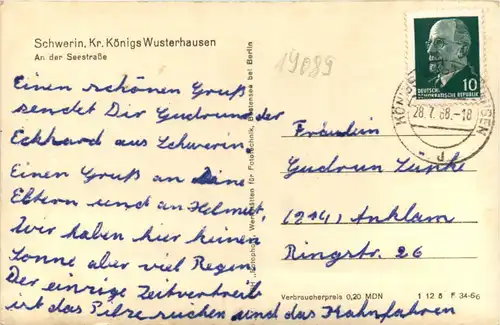 Schwerin, Kr. Königs Wusterhausen
An der Seestraße
19089
DEUTSCHE
DEMOKRATISCHE REPUBLIK
10
28.7.68.-18
d
Einen schönen Gruß
sendet Dir Gudrun der
Eckhard aus Schwerin
Einen Gruß an Deine
Eltern und an Helmut,
Wir haben hier keinen
Sonne aber viel Regen
Der einzige Zeitvertreib
ist das Pilze suchen und das Kahnfahren
Fräulein
Gudrun
(214) Anklam
Ringstr. 26
Werkstätten für Fototechnik, bei Berlin
Verbraucherpreis 0,20 MDN
1 12 8 F 34-66